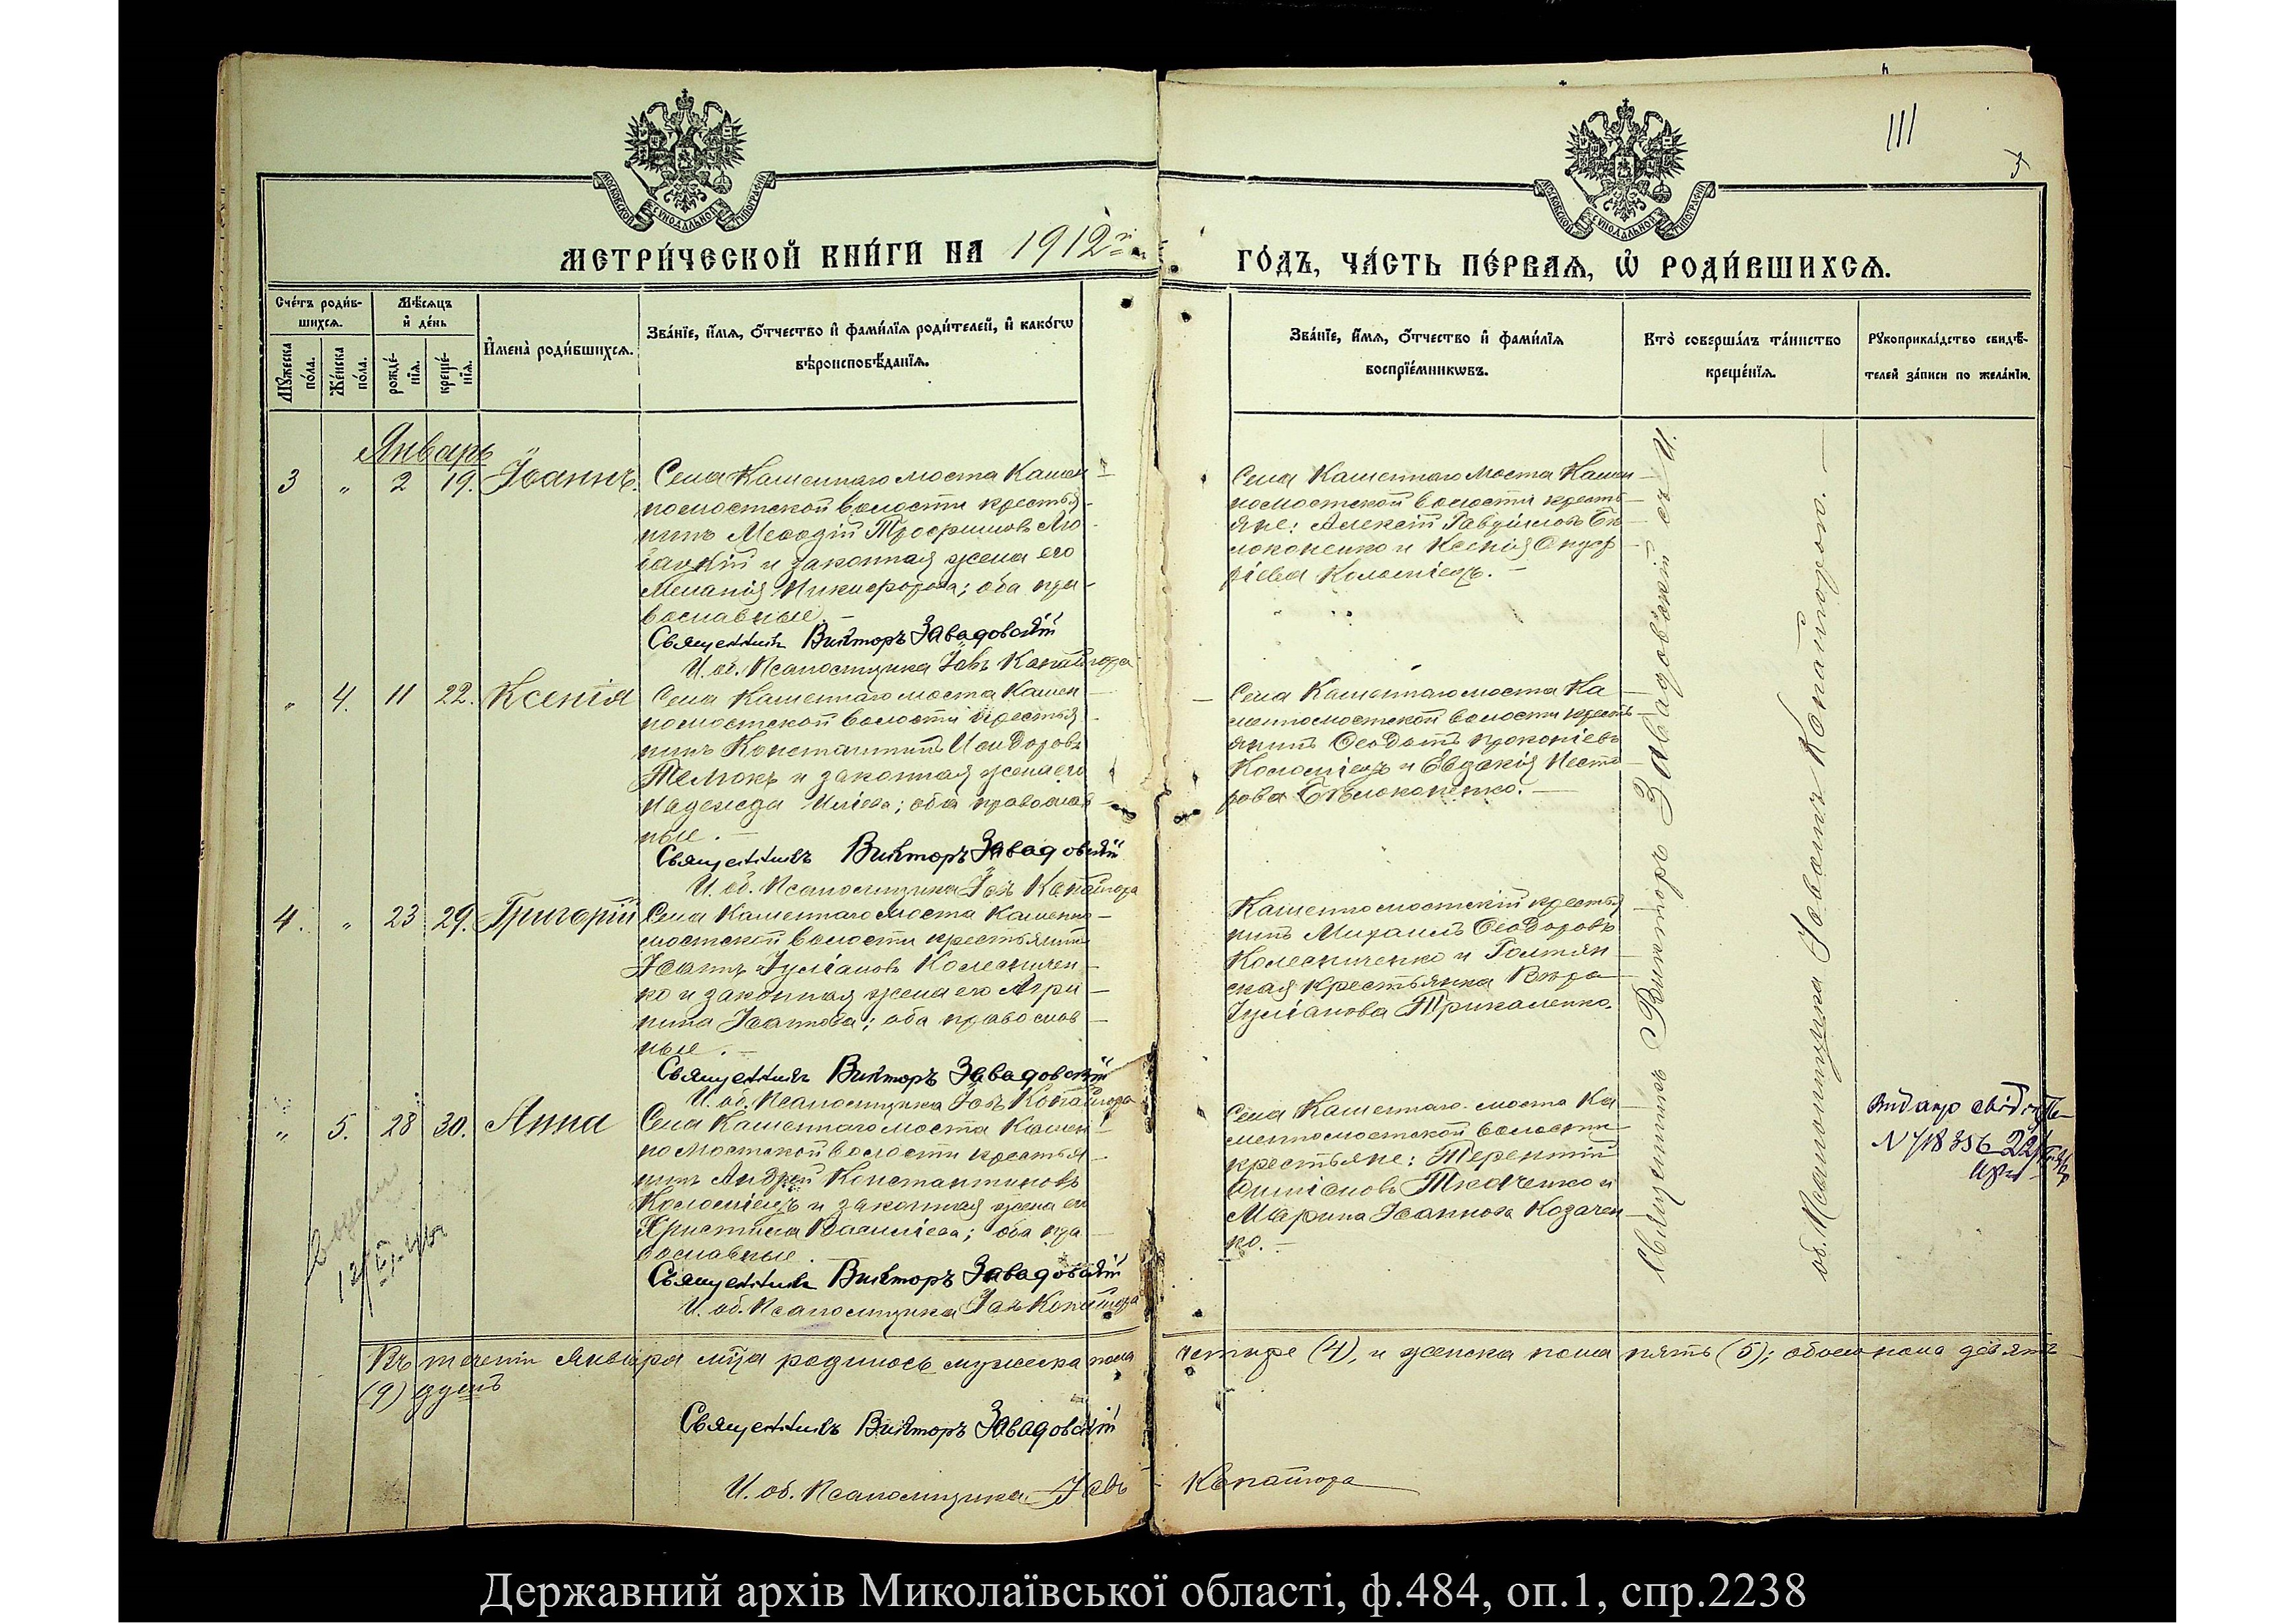 111
5
МОСКОВСКОЙ СѴНОДАЛЬНОЙ ТИПОГРАФІИ
МОСКОВСКОЙ СѴНОДАЛЬНОЙ ТИПОГРАФІИ
МЕТРИ́ЧЕСКОЙ КНИ́ГИ НА 1912й
ГО́ДЪ, ЧА́СТЬ ПЕ́РВАѦ, Ѡ҆ РОДИ́ВШИХСѦ.
Сче́тъ роди́в-
шихсѧ.
Мꙋ́жеска по́ла.
Же́нска по́ла.
Мѣ́сѧцъ
и҆ де́нь
рожде́-
нїѧ.
креще́-
нїѧ.
И҆мена̀ роди́вшихсѧ.
Зва́нїе, и҆́мѧ, ѻ҆́тчество и҆ фами́лїѧ роди́телей, и҆ како́гѡ
вѣроисповѣ́данїѧ.
Зва́нїе, и҆́мѧ, ѻ҆́тчество и҆ фами́лїѧ
воспрїе́мникѡвъ.
Кто̀ соверша́лъ та́инство
креще́нїѧ.
Рꙋкоприкла́дство свидѣ́-
телей за́писи по жела́нїю.
Январь
3 " 2 19. Іоаннъ.
Села Каменнаго моста Камен-
номостской волости крестья-
нинъ Меѳодій Трофимовъ
и законная жена его
Меланія Никифорова; оба пра-
вославные. –
Священникъ Викторъ Завадовскій
И. об. Псаломщика Іовъ Копайгора
Села Каменнаго Моста Камен-
номостской волости кресть-
яне: Алексій Гавріиловъ Бѣ-
локоненко и Ксенія Онуф-
ріева Коломіецъ. –
" 4. 11 22. Ксенія
Села Каменнаго моста Камен-
номостской волости крестья-
нинъ Константинъ Исидоровъ
и законная жена его
Надежда Иліева; оба православ-
ные. –
Священникъ Викторъ Завадовскій
И. об. Псаломщика Іовъ Копайгора
Села Каменнаго моста Ка-
менномостской волости кресть-
янинъ Ѳеодотъ Прокопіевъ
Коломіецъ и Евдокія Несто-
рова Бѣлоконенко. –
4. " 23 29. Григорій
Села Каменнаго Моста Каменно-
мостской волости крестьянинъ
Іоаннъ Іуліановъ Колесничен-
ко и законная жена его Агри-
пина Іоаннова; оба православ-
ные. –
Священникъ Викторъ Завадовскій
И. об. Псаломщика Іовъ Копайгора
Каменномостскій крестья-
нинъ Михаилъ Ѳеодоровъ
Колесниченко и Голтян-
ская крестьянка Вѣра
Іуліанова Трикаленко.
" 5. 28 30. Анна
Села Каменнаго моста Камен-
номостской волости крестья-
нинъ Андрей Константиновъ
Коломіецъ и законная жена его
Христина Василіева; оба пра-
вославные.
Священникъ Викторъ Завадовскій
И. об. Псаломщика Іовъ Копайгора
Села Каменнаго моста Ка-
менномостской волости
крестьяне: Терентій
Ткаченко и
Марина Іоаннова Козачен-
ко. –
Священникъ Викторъ Завадовскій съ И.
об. Псаломщика Іовомъ Копайгорою. –
Видано
N 718356 22/
Въ теченіи Января мѣсяца родилось мужеска пола четыре (4), и женска пола пять (5); обоего пола девять
(9) душъ
Священникъ Викторъ Завадовскій
И. об. Псаломщика Іовъ Копайгора
Державний архів Миколаївської області, ф.484, оп.1, спр.2238